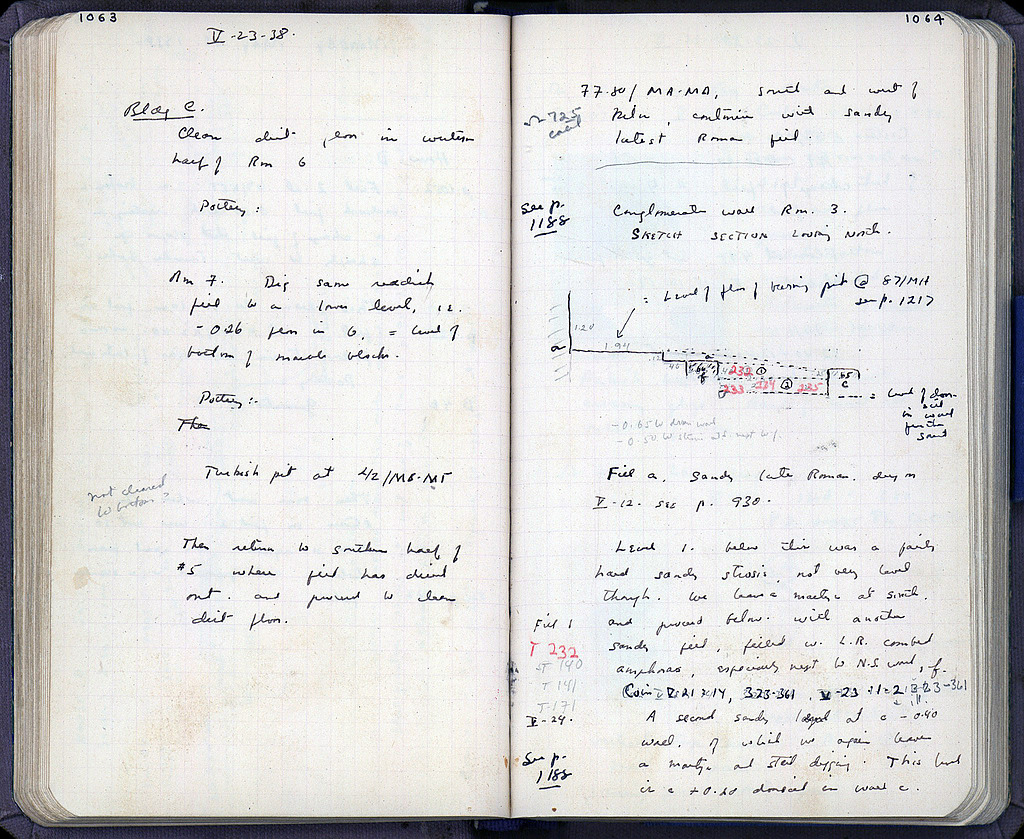 1063
V-23-38.
Bldg C.
Clean dirt floor in western
half of Rm 6
Pottery:
Rm 7. Dig same reddish
fill to a lower level, i.e.
-0.26 floor in 6, = level of
bottom of marble blocks.
Pottery:-
The
Turkish pit at
not cleared
to bottom?
Then return to southern half of
#5 where fill has dried
out. and proceed to clean
dirt floor.
1064
77-80/MA-MA, south and west of
Kiln, continue with sandy
latest Roman fill.
See p.
1188
Conglomerate wall Rm. 3.
SKETCH SECTION Looking North.
= Level of floor of burning pit @ 87/MH
see p. 1217
1.20
1.94
a
232 1
233 234 2 235
.65
c
= level of door
sill
in wall
further
south
-0.65 W
-0.50 W
Fill a. Sandy late Roman. dug on
V-12. see p. 930.
Level 1. below this was a fairly
hard sandy strosis, not very level
though. We leave a martyr at south.
Fill 1
and proceed below. with another
T 232
sandy fill, filled w. L.R. combed
ST 140
amphoras, especially next to N.S. wall, f.
T 141
T 171
Coin 323-361, V-23
V-24.
A second sandy layer at c -0.40
level. of which we again leave
See p.
1188
a martyr and start digging. This level
is c +0.10 in wall c.